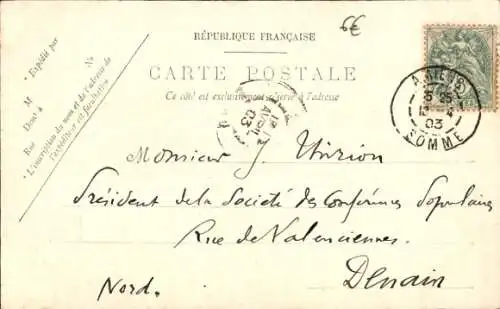 6€
RÉPUBLIQUE FRANÇAISE
CARTE POSTALE
Ce côté est exclusivement réservé à l'adresse
Expédié par
M
Demt à
Rue
No
L'inscription du nom et de l'adresse de
l'expéditeur est facultative
AMIENS
03
SOMME
12
AVRIL
03
Monsieur J
Président de la Société des Conférences Populaires
Rue de Valenciennes.
Denain
Nord.